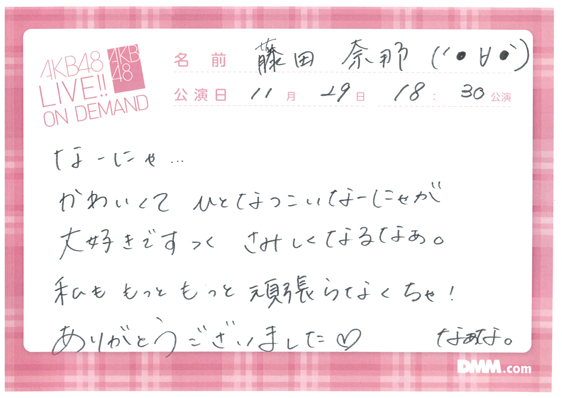 AKB48
LIVE!!
ON DEMAND
AKB
48
名前 藤田 奈那 (´●∀●`)
公演日 11月 29日 18:30公演
なーにゃ…
かわいくて ひとなつこいなーにゃが
大好きですっ さみしくなるなぁ。
私も もっともっと 頑張らなくちゃ!
ありがとうございました♡
なぁな。
DMM.com